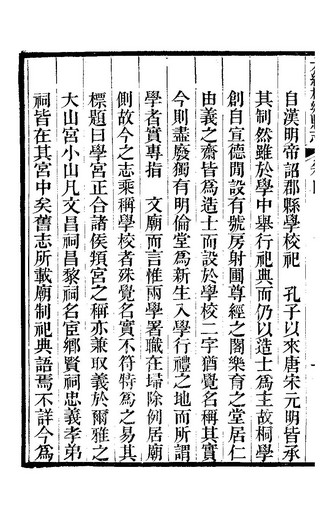 自漢明帝詔郡縣學校祀　孔子以來唐宋元明皆承
其制然雖於學中舉行祀典而仍以造士為主故桐學
創自宣德間設有號房射圃尊經之閣樂育之堂居仁
由義之齋皆為造士而設於學校二字猶覺名稱其實
今則盡廢獨有明倫堂為新生入學行禮之地而所謂
學者實專指　文廟而言惟兩學署職在埽除例居廟
側故今之志乘稱學校者殊覺名實不符特為之易其
標題曰學宮正合諸侯頖宮之稱亦兼取義於爾雅之
大山宮小山凡文昌祠昌黎祠名宦鄉賢祠忠義孝弟
祠皆在其宮中矣舊志所載廟制祀典語焉不詳今為